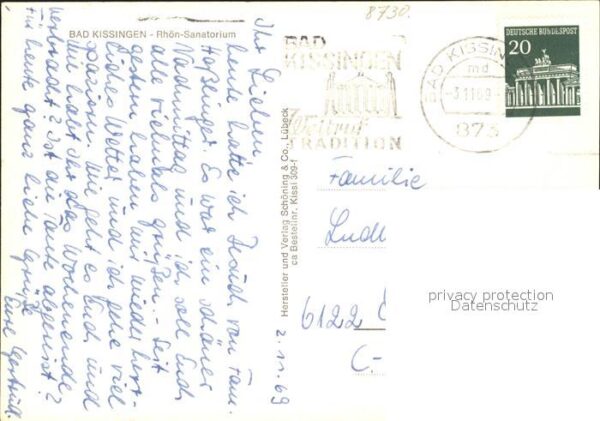 8730.
BAD KISSINGEN - Rhön-Sanatorium
Ihr Lieben,
heute hatte ich Besuch von Fam.
Haßlinger. Es war ein schöner
Nachmittag und ich soll Euch
alle vielmals grüßen. - Seit
gestern haben wir wieder herr-
liches Wetter und ich gehe viel
spazieren. Wie geht es Euch und
wie habt Ihr das Wochenende
verbracht? Ist die Tante abgereist?
Für heute ganz liebe Grüße
Eure Gertrud.
2.11.69
Hersteller und Verlag Schöning & Co., Lübeck
ca Bestellnr. Kissi 309-f
BAD
KISSINGEN
Weltruf
TRADITION
BAD KISSIN
md
-3.11.69
873
DEUTSCHE BUNDESPOST
20
Familie
6122
privacy protection
Datenschutz